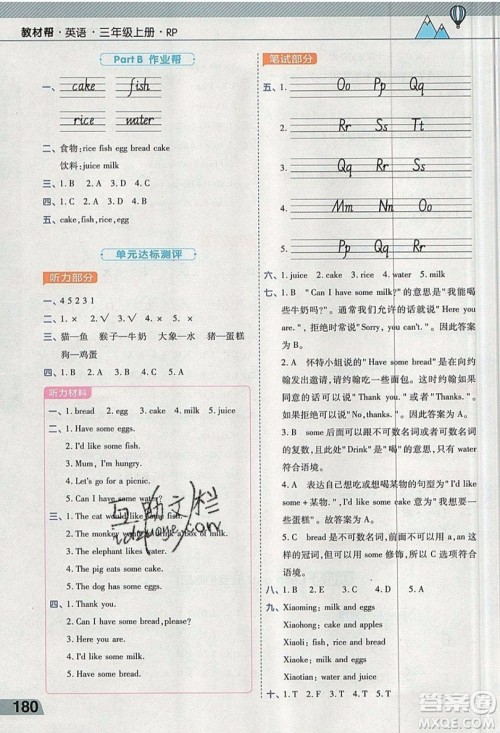 教材帮·英语·三年级上册·RP
Part B 作业帮
一、 cake fish
rice water
二、食物:rice fish egg bread cake
饮料:juice milk
三、1. B 2. A 3. D 4. C
四、1. B 2. A 3. D 4. C
五、cake,fish,rice,egg
单元达标测评
听力部分
一、4 5 2 3 1
二、1. × 2. √ 3. × 4. √ 5. √
三、猫—鱼 猴子—牛奶 大象—水 猪—蛋糕
狗—鸡蛋
四、1. B 2. A 3. A 4. C 5. B
听力材料
一、1. bread 2. egg 3. cake 4. milk 5. juice
二、1. Have some eggs.
2. I'd like some fish.
3. Mum, I'm hungry.
4. Let's go for a picnic.
5. Can I have some water?
三、1. The cat would like some fish.
2. The monkey wants to drink a box of milk.
3. The elephant likes water.
4. The pig eats some cake.
5. The dog has an egg.
四、1. Thank you.
2. Can I have some bread, please?
3. Here you are.
4. I'd like some juice.
5. Have some bread.
180
笔试部分
五、1. Oo Pp Qq
2. Rr Ss Tt
3. Qq Rr Ss
4. Mm Nn Oo
5. Pp Qq Rr
六、1. juice 2. cake 3. rice 4. water 5. milk
七、1. B "Can I have some milk?"的意思是"我能喝
些牛奶吗?"。通常我们允许的话就说"Here
you are.",拒绝时常说"Sorry, you can't."。因此答案
为 B。
2. A 怀特小姐说的"Have some bread"是在向约
翰发出邀请,请约翰吃一些面包。约翰在表达
同意的话可以说"Thanks."或"Thank you.",
拒绝时可以说"No, thanks."。因此答案为 A。
3. B some 后面可以接不可数名词或可数名词
的复数,此处"Drink"是"喝"的意思,后面要接
表示饮料的词汇。因此答案为 B。
4. A 表达自己想吃或想喝某物的句型为"I'd
like some+某物."。I'd like some cake 意为"我
想吃一些蛋糕"。故答案为 A。
5. C bread 是不可数名词,前面不可以有 a, an 这
样的冠词,但可以用 some 修饰,所以 C 选项符合
语境。
八、1. D 2. C 3. A 4. E 5. B
九、Xiaoming: milk and eggs
Xiaohong: cake and apples
Xiaoli: fish, rice and bread
Xiaotao: juice and fish
Xiaoke: milk and eggs
十、1. T 2. F 3. T 4. F 5. T
互助文栏
答案圈
www.mxqe.com